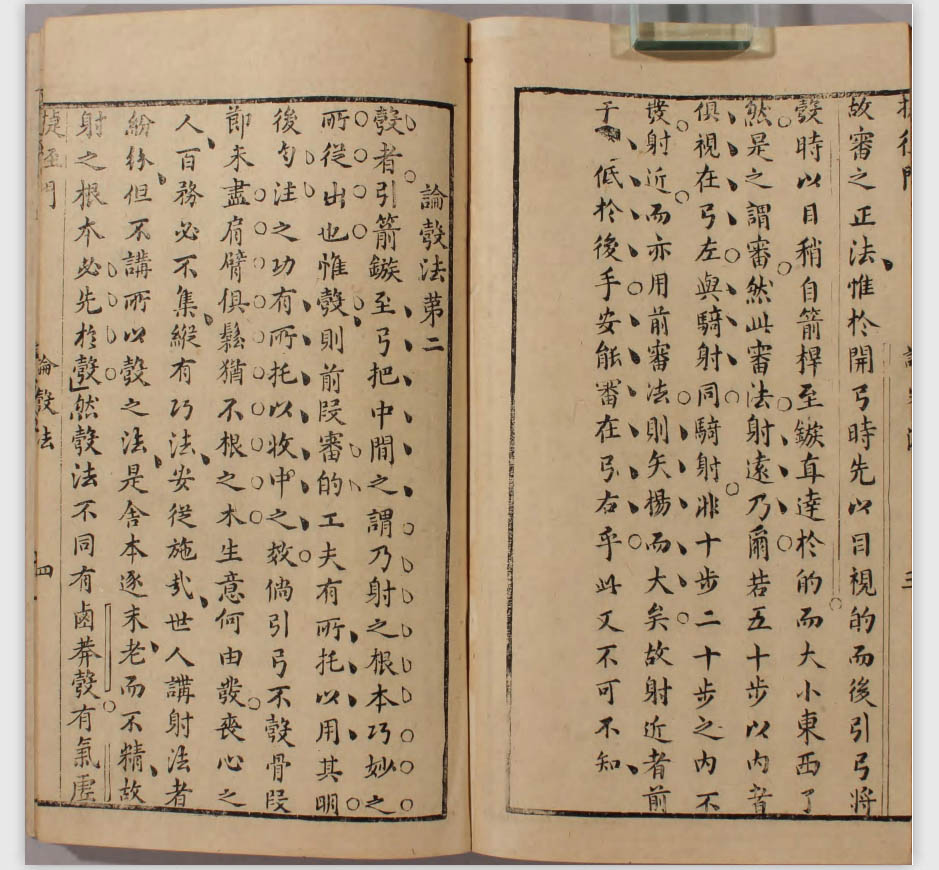 故審之正法惟於開弓時先以目視的而後引弓將
彀時以目稍自箭桿至鏃直達於的而大小東西了
然是之謂審然此審法射遠乃爾若五十步以內
俱視在弓左與騎射同騎射非十步二十步之內不
發射近而亦用前審法則矢揚而大矣故射近者前
手低於後手安能審在弓右乎此又不可不知
論彀法第二
彀者引箭鏃至弓把中間之謂乃射之根本巧妙之
所從出也惟彀則前段審的工夫有所托以用其明
後勻注之功有所托以收中之效倘引弓不彀骨段
節未盡肩臂俱鬆猶不根之木生意何由發喪心之
人百務必不集縱有巧法安從施哉世人講射法者
紛紛但不講所以彀之法是舍本逐末老而不精故
射之根本必先於彀然彀法不同有鹵莽彀有氣虛
捷徑門 論彀法 四